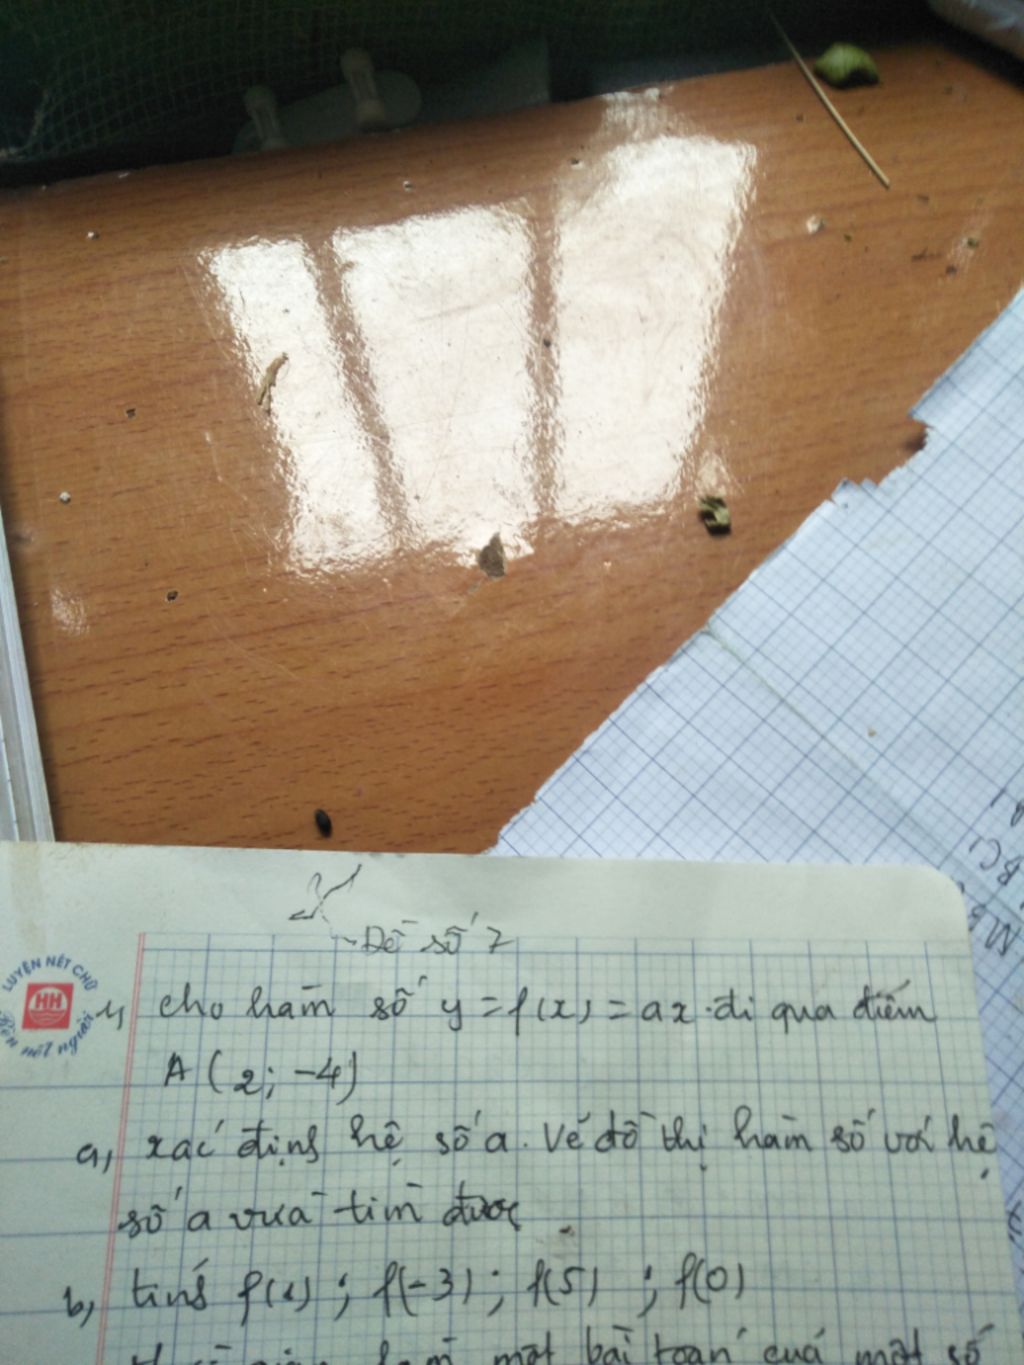 Đề số 7
LUYỆN NÉT CHỮ
HH
Rèn nết người
1, cho hàm số y = f(x) = ax đi qua điểm
A (2; -4)
a, xác định hệ số a. Vẽ đồ thị hàm số với hệ
số a vừa tìm được
b, tính f(1); f(-3); f(5); f(0)
làm một bài toán của một số
BC